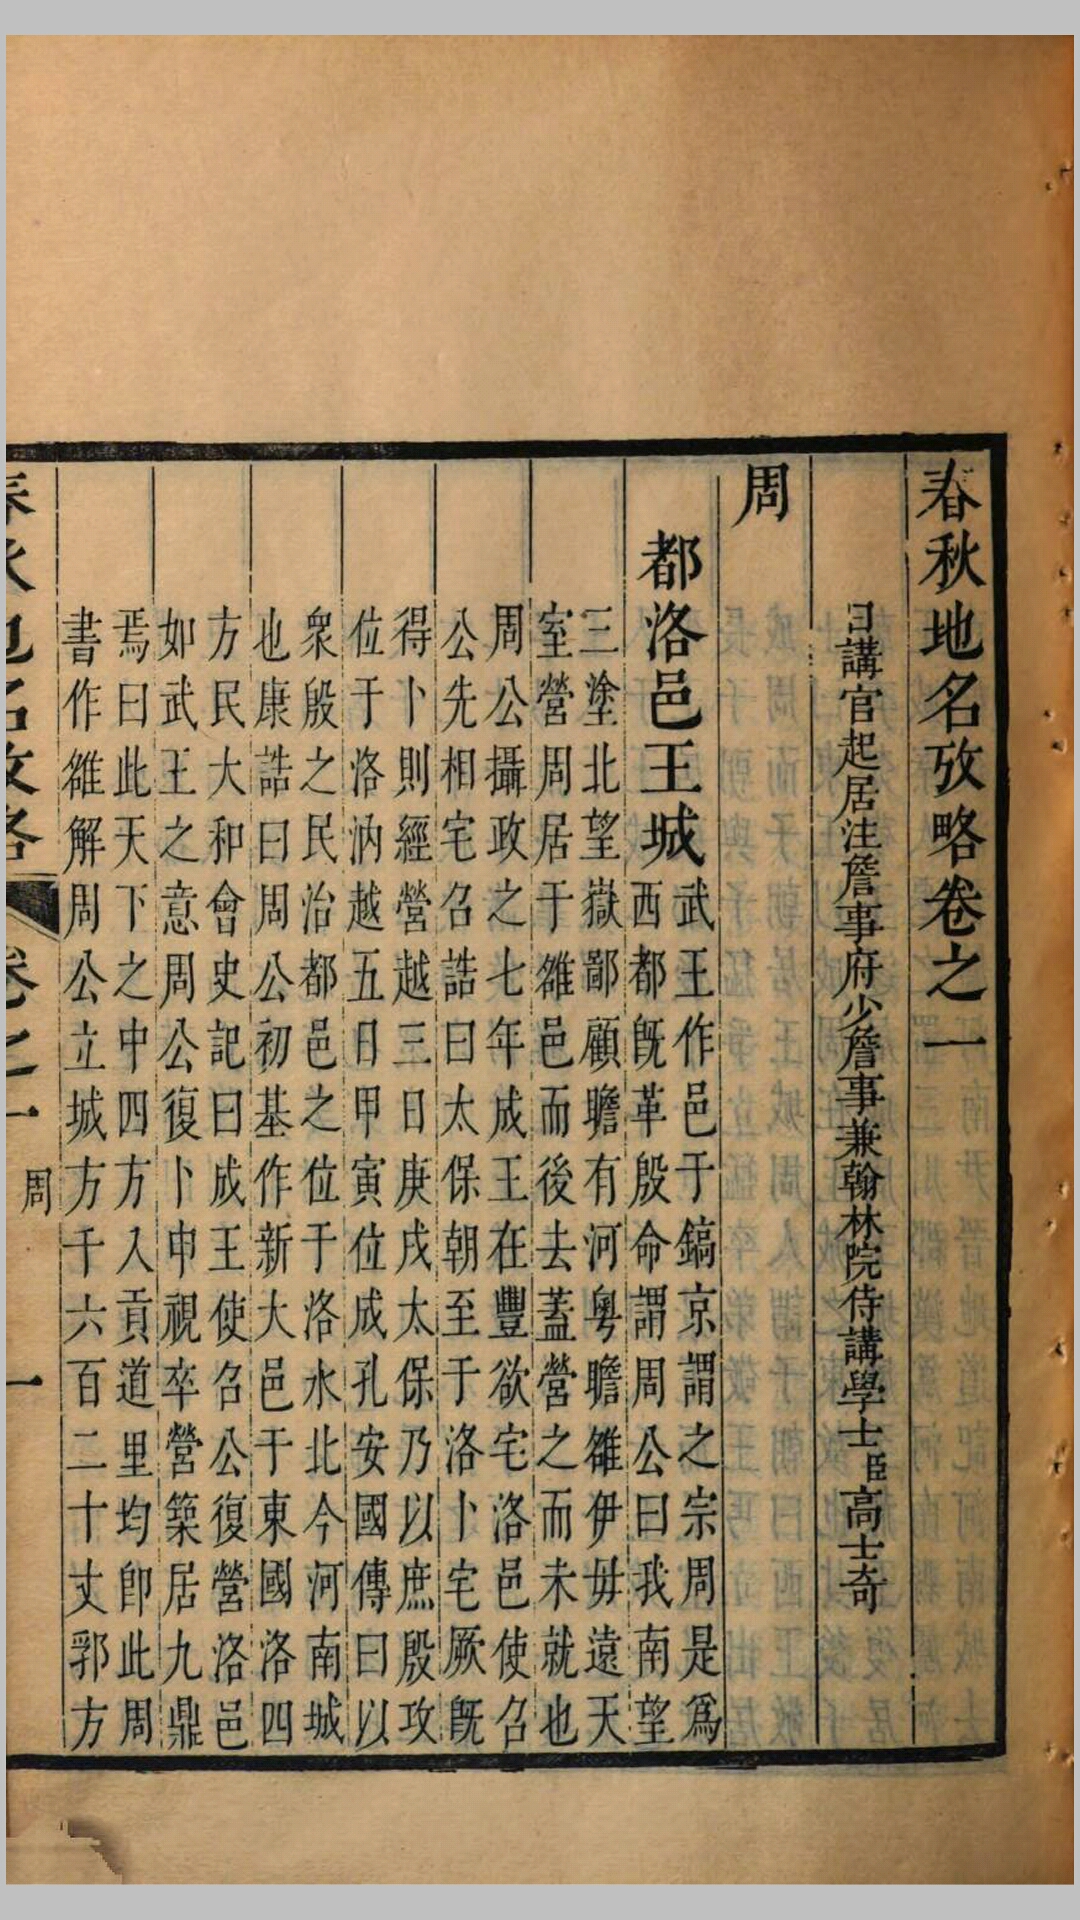 春秋地名攷略卷之一
日講官起居注詹事府少詹事兼翰林院侍講學士臣高士奇
周
都洛邑王城
武王作邑于鎬京謂之宗周是爲
西都既革殷命謂周公曰我南望
三塗北望嶽鄙顧瞻有河粵瞻雒伊毋遠天
室營周居于雒邑而後去蓋營之而未就也
周公攝政之七年成王在豐欲宅洛邑使召
公先相宅召誥曰太保朝至于洛卜宅厥既
得卜則經營越三日庚戌太保乃以庶殷攻
位于洛汭越五日甲寅位成孔安國傳曰以
衆殷之民治都邑之位于洛水北今河南城
也康誥曰周公初基作新大邑于東國洛四
方民大和會史記曰成王使召公復營洛邑
如武王之意周公復卜申視卒營築居九鼎
焉曰此天下之中四方入貢道里均卽此周
書作雒解周公立城方千六百二十丈郛方
春秋地名攷略
卷之一
周
一